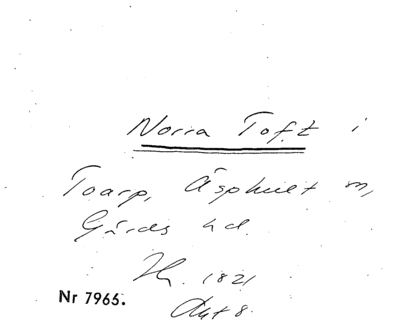 Norra Toft i
Toarp, Äsphult sn,
Gärds hd.
1821
Nr 7965.
Akt 8.